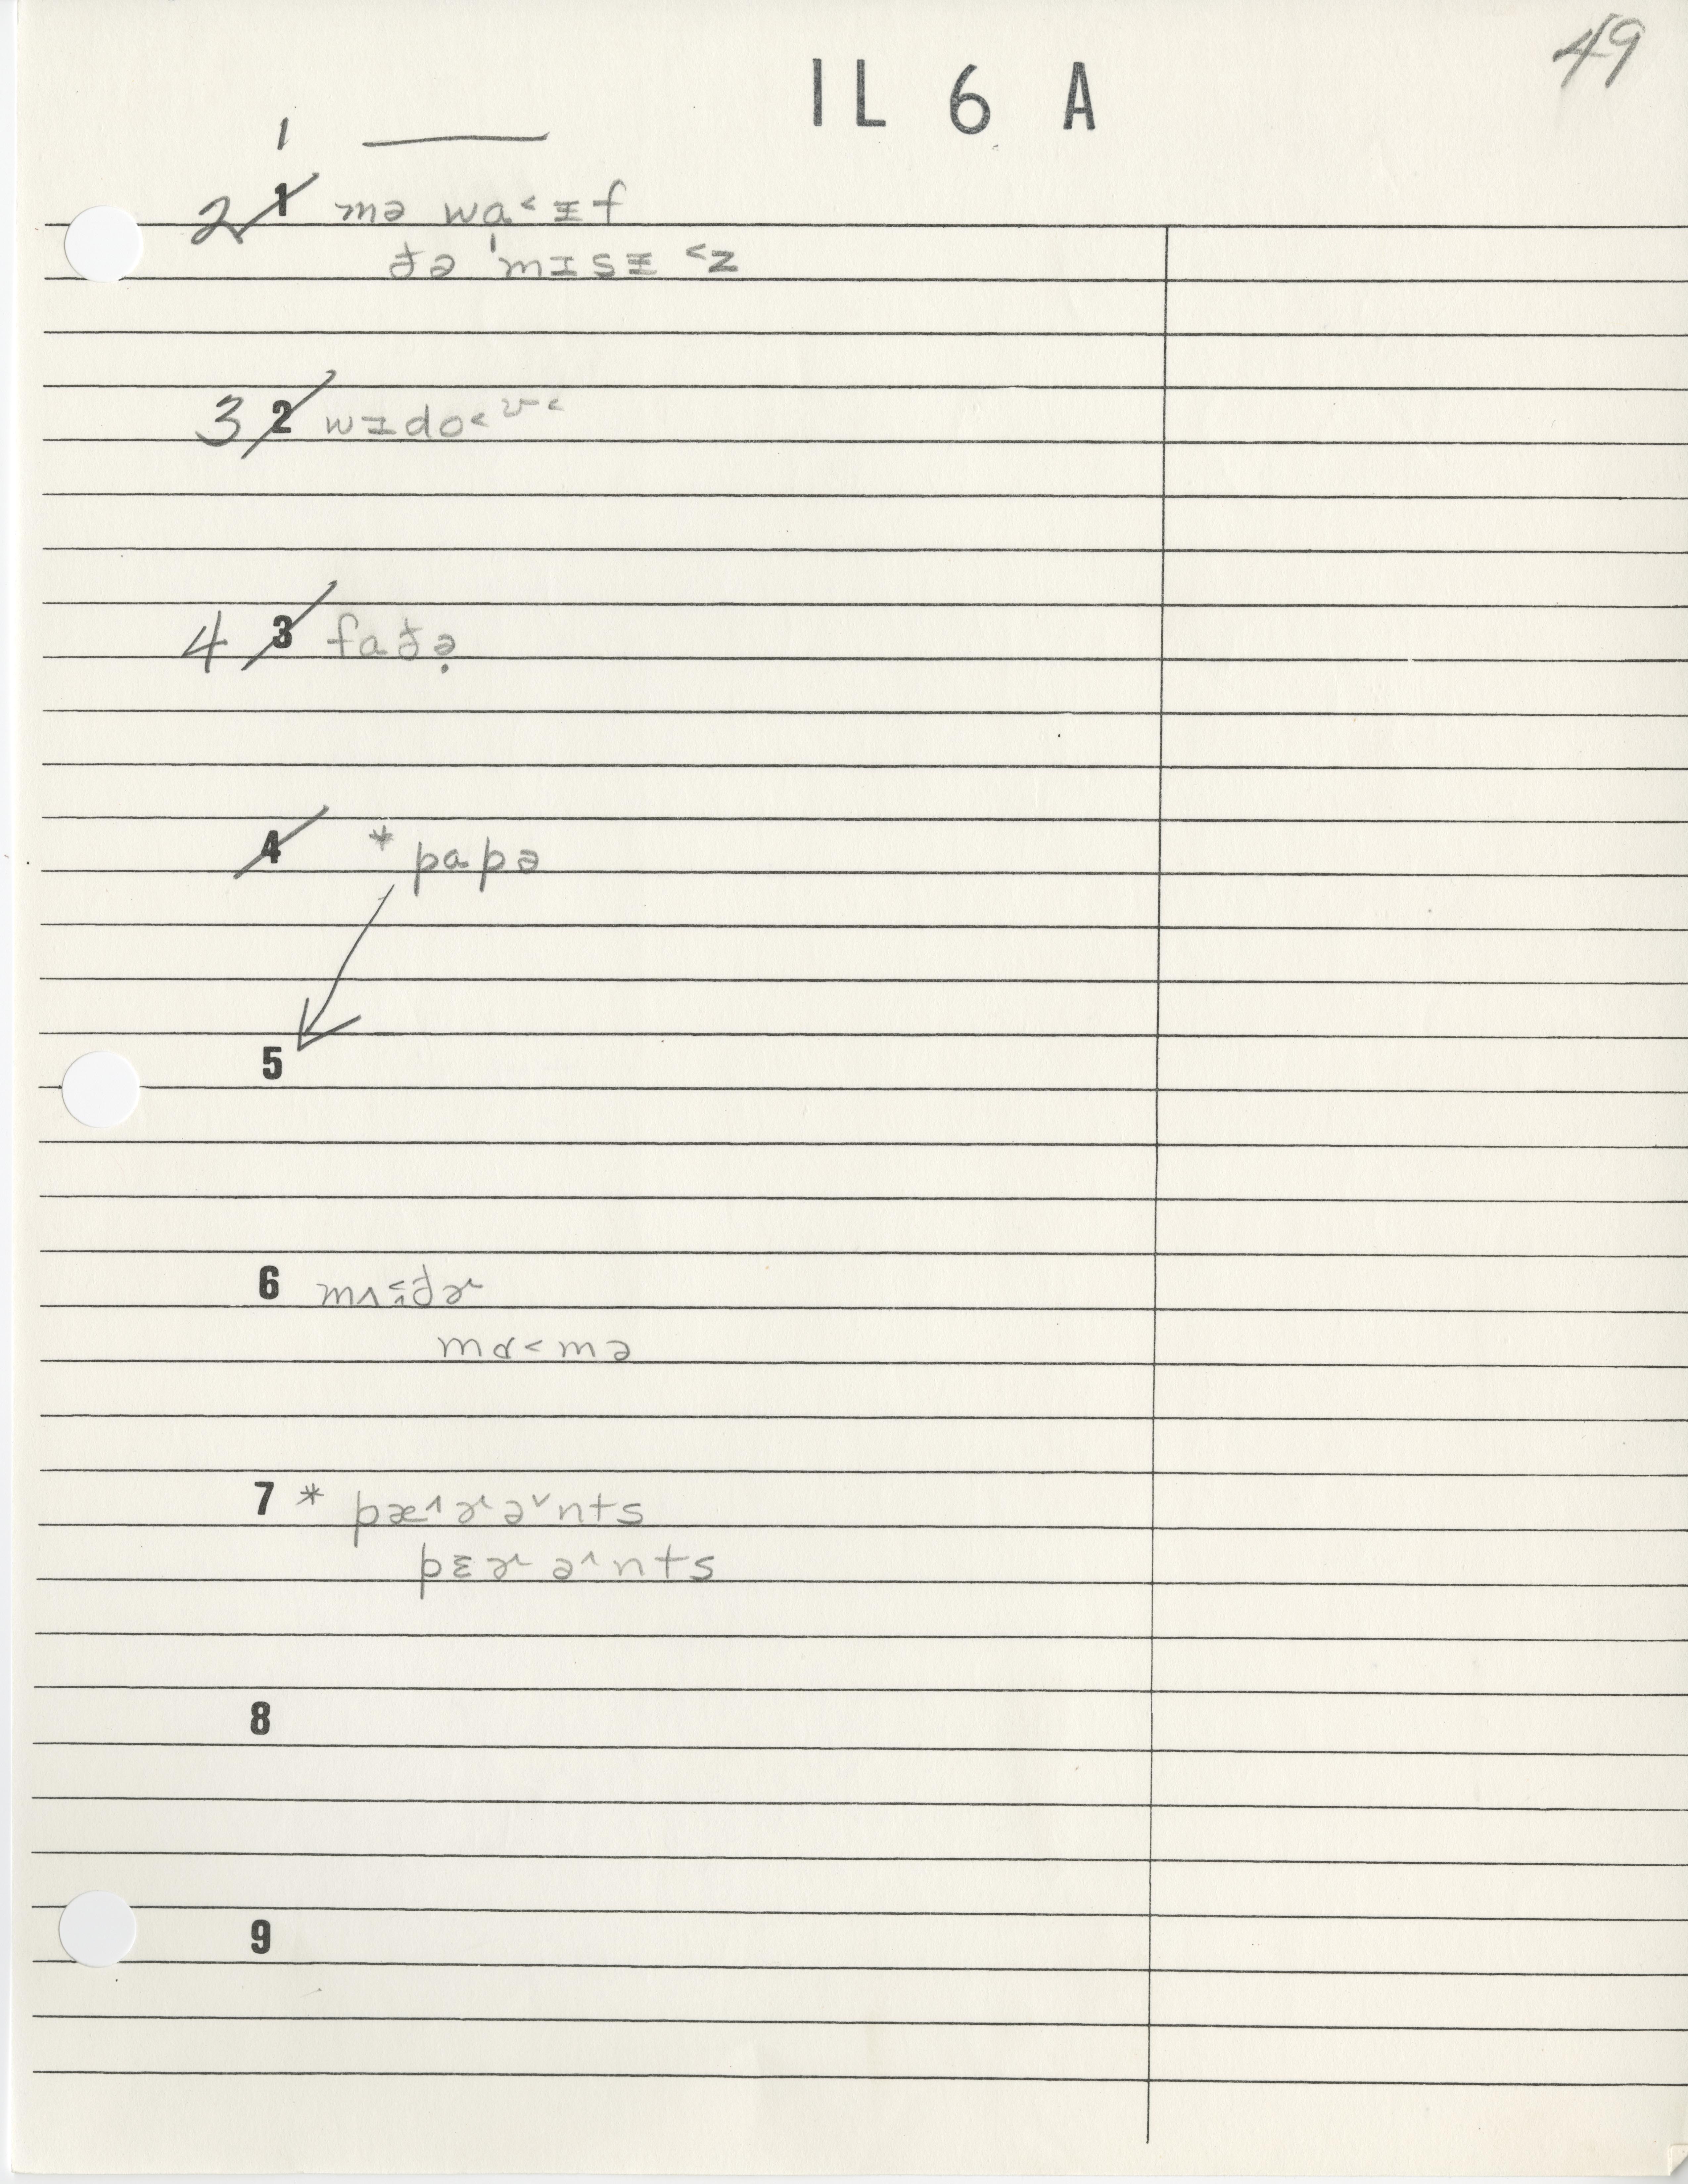 49
IL 6 A
1 ———
2 1 mə wa˂ᵻf
ðə ˈmɪsᵻ ˂z
3 2 wɪdo˂ʊ˂
4 3 faðə̣
4 * papə
5
6 mʌ˂ðɚ
mɑ˂mə
7 * pæ˄ɚə˅nts
pɛɚə˄nts
8
9